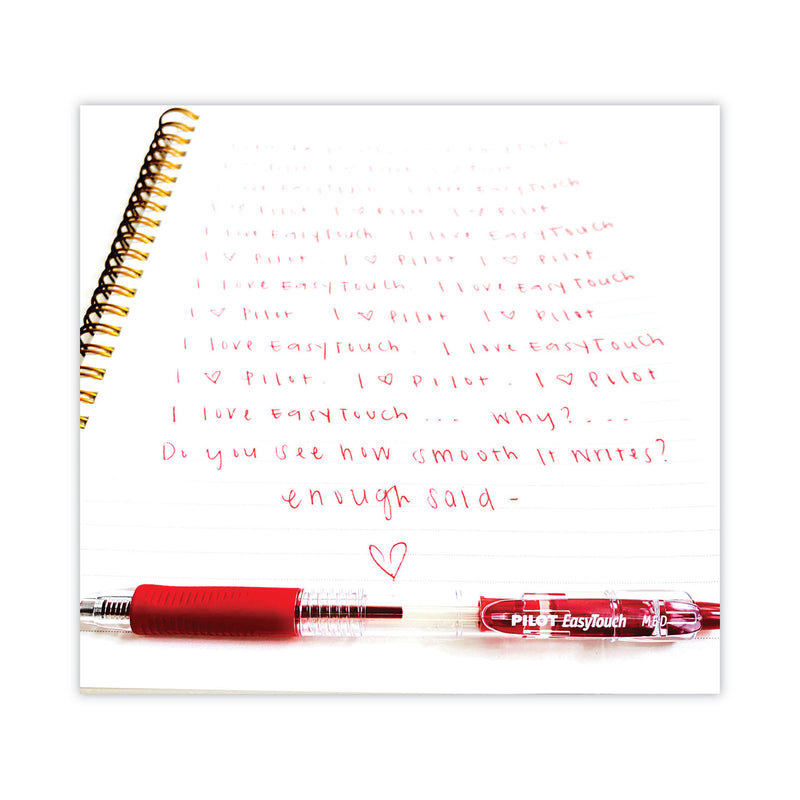 I love EasyTouch I love EasyTouch
I ♡ Pilot I ♡ Pilot I ♡ Pilot
I love EasyTouch I love EasyTouch
I ♡ Pilot. I ♡ Pilot I ♡ Pilot
I love EasyTouch. I love EasyTouch
I ♡ Pilot I ♡ Pilot I ♡ Pilot
I love EasyTouch. I love EasyTouch
I ♡ Pilot. I ♡ Pilot. I ♡ Pilot
I love EasyTouch ... Why?...
Do you see how smooth it writes?
enough said -
♡
PILOT EasyTouch MED